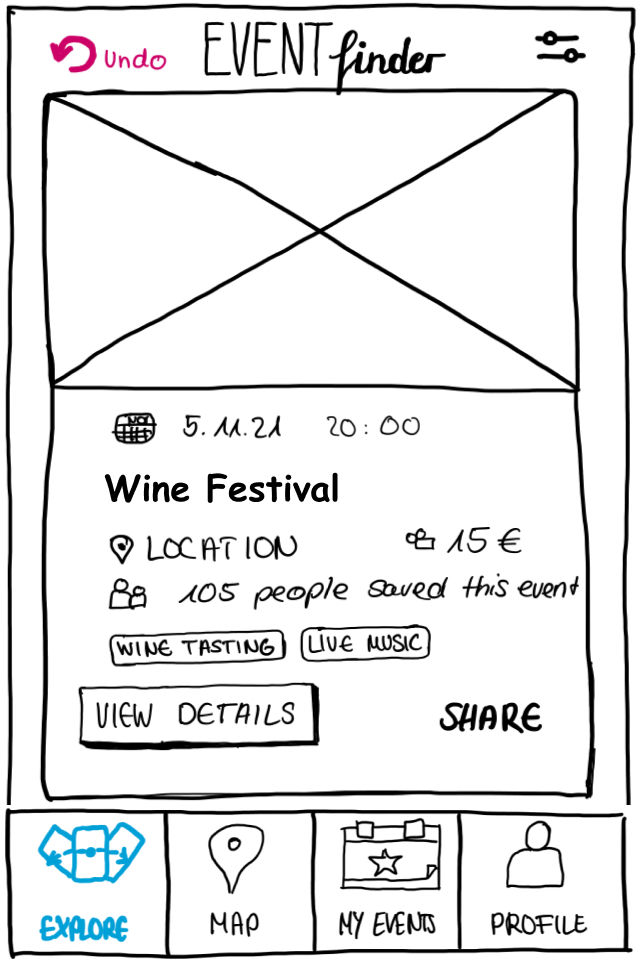 Undo EVENTfinder
NOV
5.11.21 20:00
Wine Festival
LOCATION 15 €
105 people saved this event
WINE TASTING LIVE MUSIC
VIEW DETAILS SHARE
EXPLORE MAP MY EVENTS PROFILE